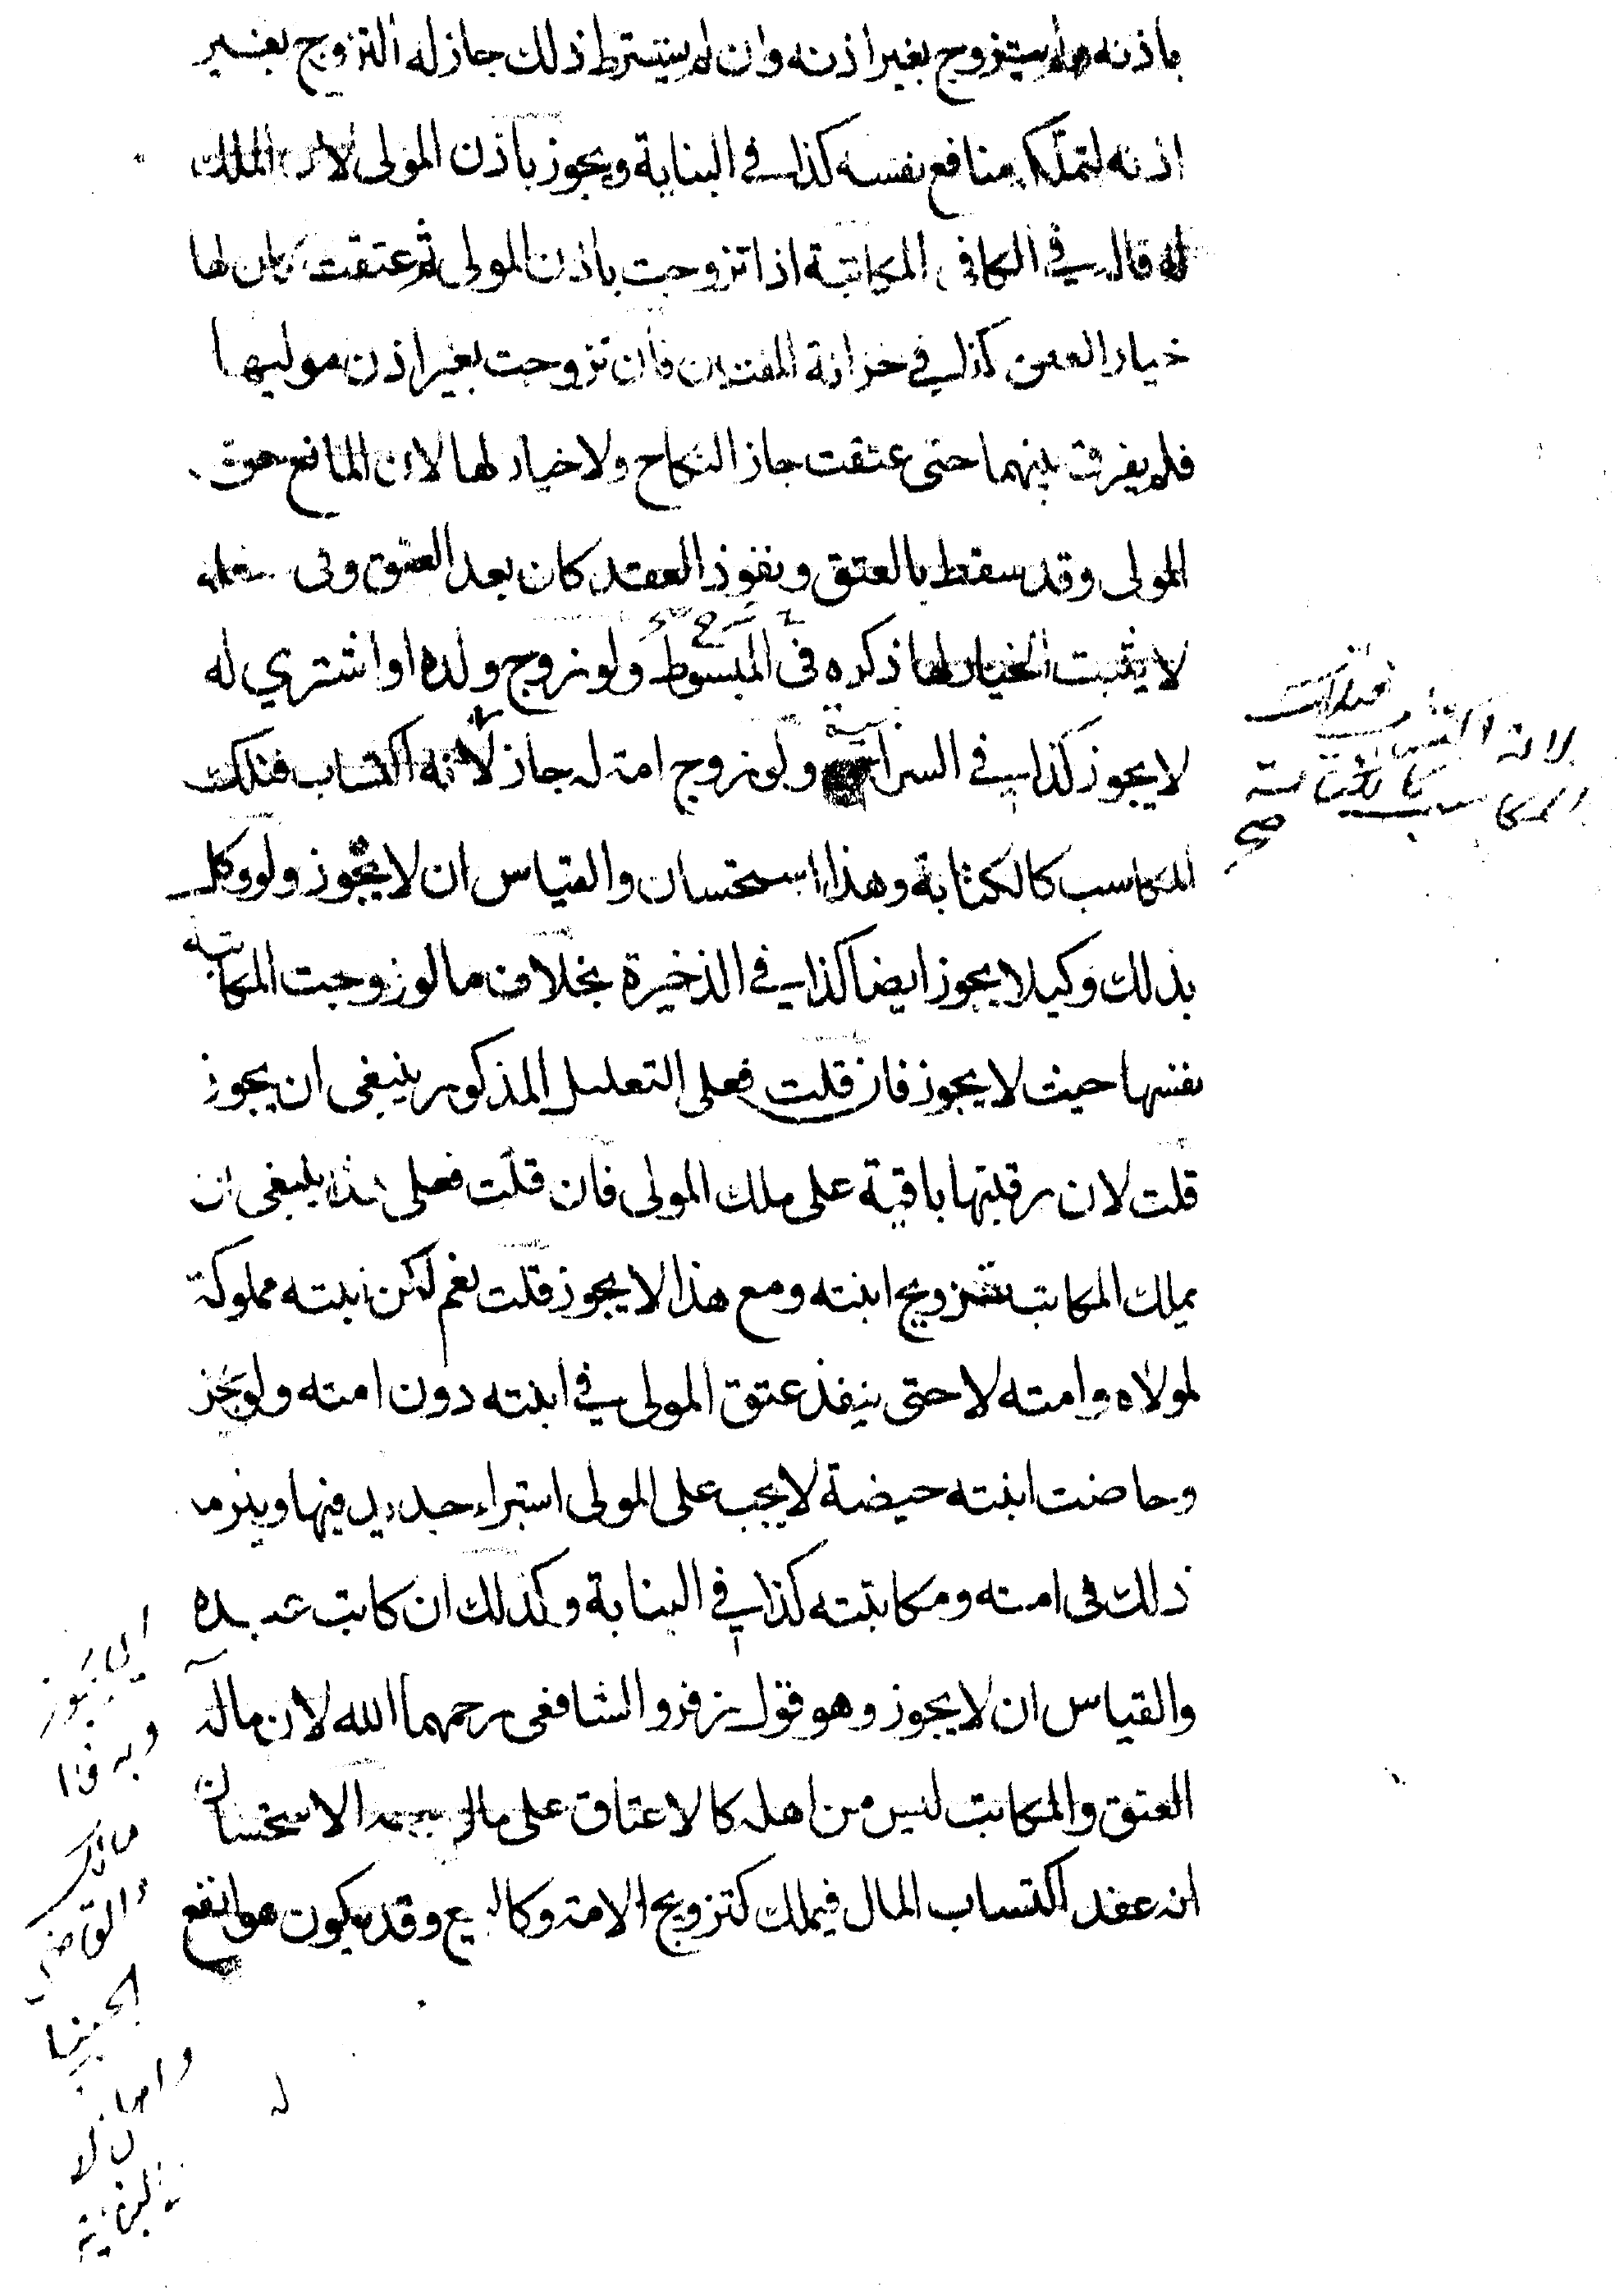 باذنه ولم يتزوج بغير اذنه وان لم يشترط ذلك جاز له التزوج بغير
اذنه لتملكه منافع نفسه كذا في البناية ويجوز باذن المولى لان الملك
له قال في الكافي المكاتبة اذا تزوجت باذن المولى ثم عتقت كان لها
خيار العتق كذا في خزانة المفتين فان تزوجت بغير اذن موليها
فلم يفرق بينهما حتى عتقت جاز النكاح ولا خيار لها لان المانع حق
المولى وقد سقط بالعتق ونفوذ العقد كان بعد العتق وفي مثله
لا يثبت الخيار لها ذكره في المبسوط ولو زوج ولده او اشتري له
لا يجوز كذا في السراج ولو زوج امته له جاز لانه اكتساب فتلك
المكاسب كالكتابة وهذا استحسان والقياس ان لا يجوز ولو وكل
بذلك وكيلا يجوز ايضا كذا في الذخيرة بخلاف ما لو زوجت المكاتبة
نفسها حيث لا يجوز فان قلت فعلى التعليل المذكور ينبغي ان يجوز
قلت لان رقبتها باقية على ملك المولى فان قلت فعلى هذا ينبغي ان
يملك المكاتب تزويج ابنته ومع هذا لا يجوز قلت نعم لكن ابنته مملوكة
لمولاه وامته لا حتى ينفذ عتق المولى في ابنته دون امته ولو عجز
وحاضت ابنته حيضة لا يجب على المولى استبراء جديد فيها ويلزمه
ذلك في امته ومكاتبته كذا في البناية وكذلك ان كاتب عبده
والقياس ان لا يجوز وهو قول زفر والشافعي رحمهما الله لان مآله
العتق والمكاتب ليس من اهله كالاعتاق على مال وجه الاستحسان
انه عقد اكتساب المال فيملك كتزويج الامة وكالبيع وقد يكون هو انفع
لانه اكتساب
المكاسب كالكتابة
صح